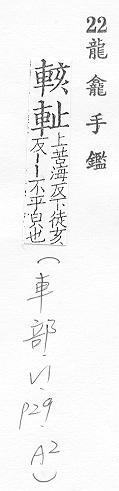 22 龍龕手鑑
輆
上苦海反下徒亥
反丨丨不平皃也
(車部·VI·P29·A2)